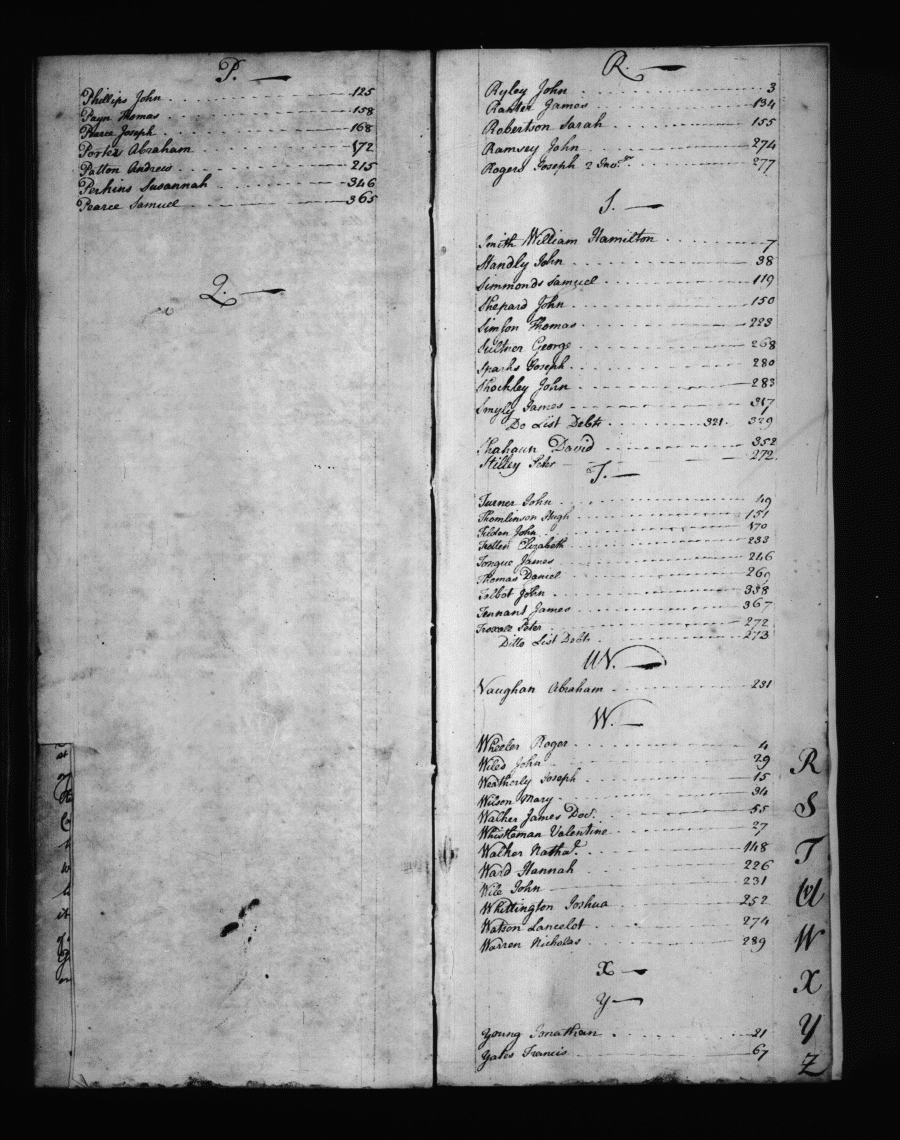 P.
Phillips John 125
Payn Thomas 158
Pearce Joseph 168
Porter Abraham 172
Patton Andrew 215
Perkins Susannah 346
Pearce Samuel 365
Q.
R.
Ryley John 3
James 134
Robertson Sarah 155
Ramsey John 274
Rogers Joseph 277
S.
Smith William Hamilton 7
Standly John 38
Simmonds Samuel 119
Shepard John 150
Simson Thomas 223
George 268
Sparks Joseph 280
Shockley John 283
Smyly James 317
Do List Debts 321. 329
Shahaun David 352
Stilley Peter 272.
T.
Turner John 49
Thomlinson Hugh 151
Tilden John 170
Elizabeth 233
Tongue James 246
Thomas Daniel 269
Tolbot John 338
Tennant James 367
Peter 272
Ditto List Debts 273
UV.
Vaughan Abraham 231
W.
Wheeler Roger 4
Wiles John 29
Weatherly Joseph 15
Wilson Mary 34
Walker James Doct. 55
Whistleman Valentine 27
Walker Nathal. 148
Ward Hannah 226
Wile John 231
Whittington Joshua 252
Watson Lancelot 274
Warren Nicholas 289
X
Y
Young Jonathan 21
Yates Francis 67
R
S
T
UV
W
X
Y
Z